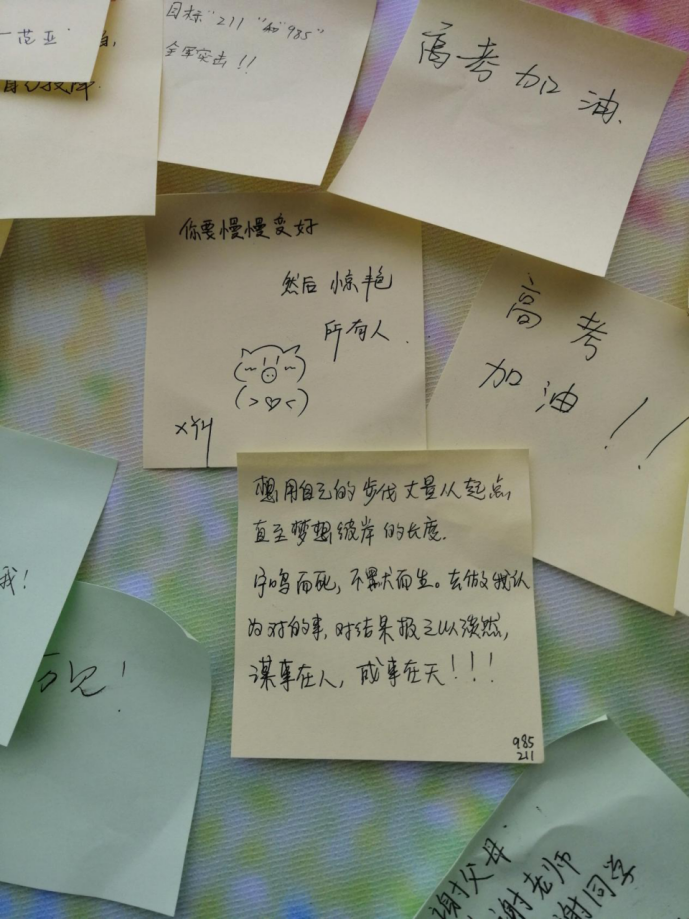 范亚
目标"211"和"985"
全军突击!!
高考加油.
你要慢慢变好
然后惊艳
所有人.
高考
加油!!
想用自己的步伐丈量从起点,
直至梦想彼岸的长度.
宁鸣而死,不默而生。去做我认
为对的事,对结果报之以淡然,
谋事在人,成事在天!!!
985
211
我!
谢父母
谢老师
谢同学